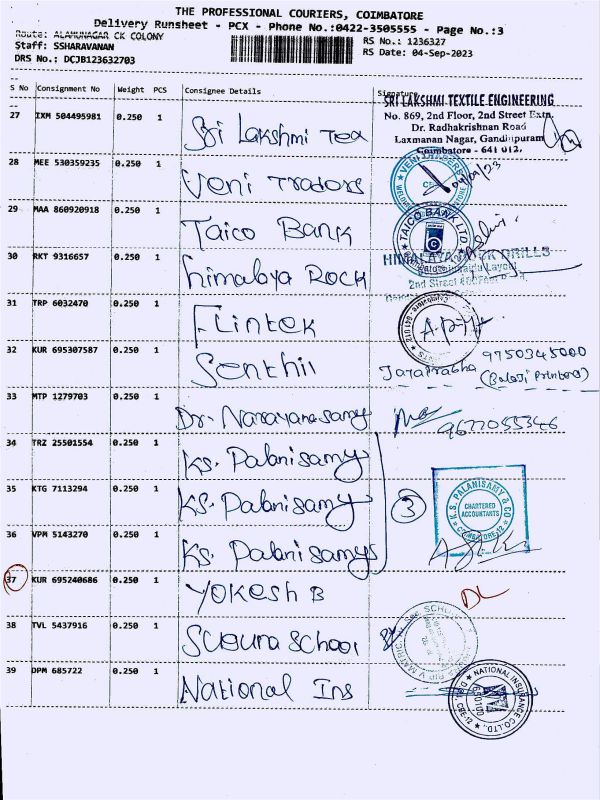 THE PROFESSIONAL COURIERS, COIMBATORE
Delivery Runsheet - PCX - Phone No.:0422-3505555 - Page No.:3
Route: ALAMUNAGAR CK COLONY
RS No.: 1236327
Staff: SSHARAVANAN
RS Date: 04-Sep-2023
DRS No.: DCJB123632703
S No Consignment No Weight PCS Consignee Details Signature
27 IXM 504495981 0.250 1 Sri Lakshmi Tea
SRI LAKSHMI TEXTILE ENGINEERING
No. 869, 2nd Floor, 2nd Street Extn.
Dr. Radhakrishnan Road
Laxmanan Nagar, Gandhipuram
Coimbatore - 641 012.
28 MEE 530359235 0.250 1 Veni Traders
04/09/23
29 MAA 860920918 0.250 1 Taico Bank
TAICO BANK LTD
30 RKT 9316657 0.250 1 himalaya ROCK
HIMALAYA ROCK DRILLS
31 TRP 6032470 0.250 1 Flintek
32 KUR 695307587 0.250 1 Senthil
Jayaprabha 9750345000
(Balaji Printers)
33 MTP 1279703 0.250 1 Dr. Narayanasamy
9677055346
34 TRZ 25501554 0.250 1 KS. Palanisamy
35 KTG 7113294 0.250 1 KS. Palanisamy
3
K.S. PALANISAMY & CO
CHARTERED
ACCOUNTANTS
COIMBATORE-12
36 VPM 5143270 0.250 1 KS. Palanisamy
37 KUR 695240686 0.250 1 Yokesh B
DL
38 TVL 5437916 0.250 1 Suguna School
39 DPM 685722 0.250 1 National Ins
NATIONAL INSURANCE CO.LTD.
650100
CBE-12